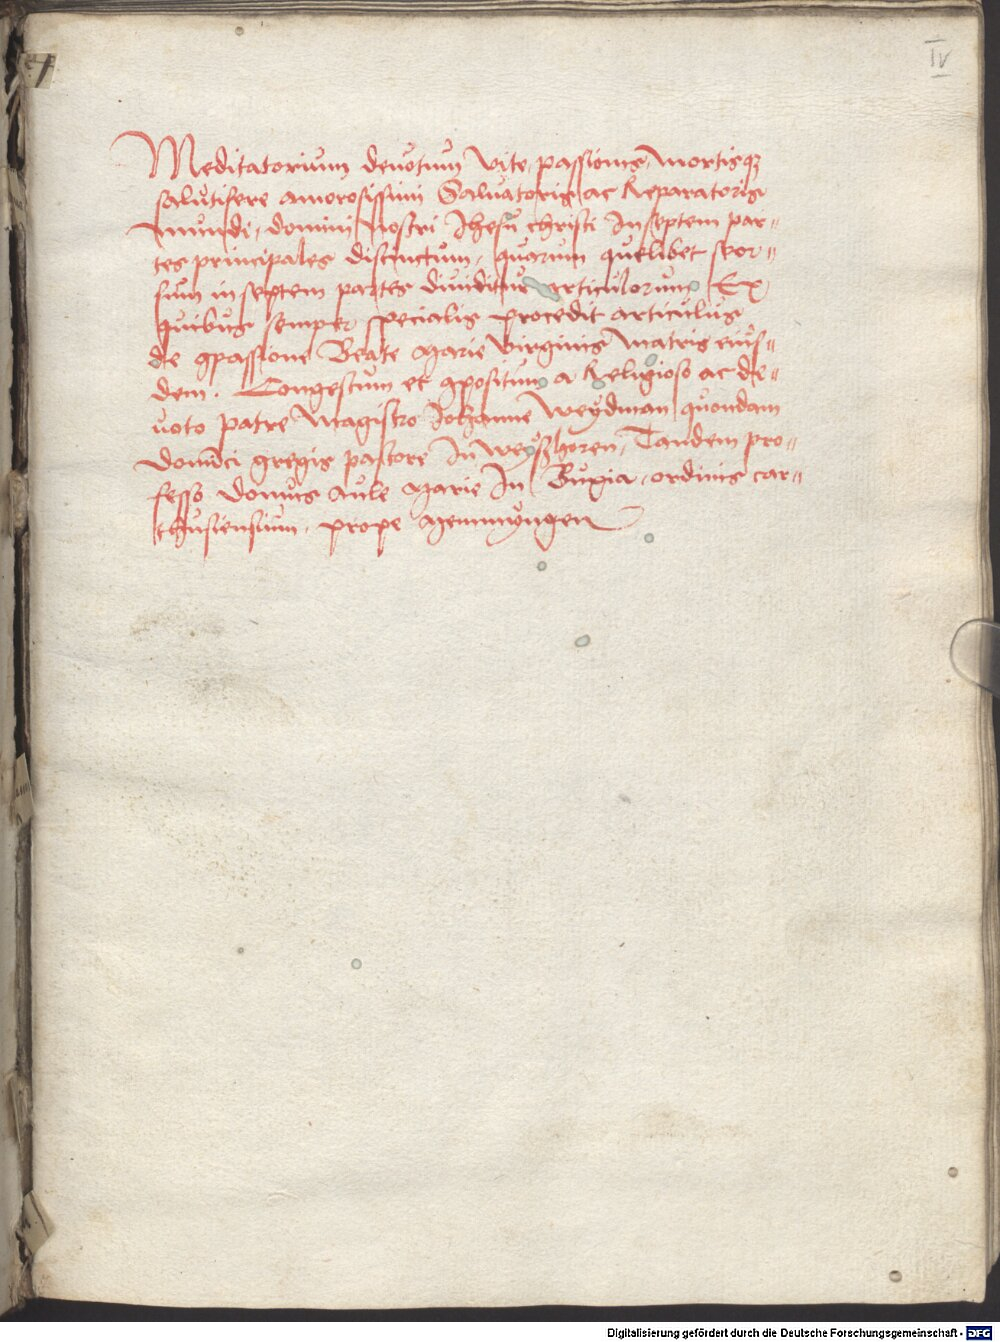 IV
Meditatorium deuotum vite, passionis, mortisqȝ
salutifere amorosissimi Saluatoris ac Reparatoris
mundi, domini nostri Jhesu christi In septem par-
tes principales distinctum, quarum quelibet seor-
sum in septem partes diuiditur articulorum Ex
quibus semper specialis procedit articulus
de ꝯpassione Beate Marie virginis Matris eius-
dem. Congestum et ꝯpositum a Religioso ac de-
uoto patre Magistro Johanne Weydman quondam
dominici gregis pastore In Weyßhoren, Tandem pro-
fesso domus Aule Marie In Buxia, ordinis car-
thusiensium, prope Memmyngen
Digitalisierung gefördert durch die Deutsche Forschungsgemeinschaft - DFG